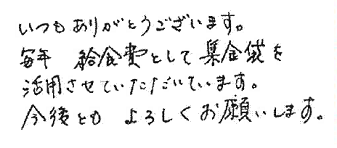 いつもありがとうございます。
毎年 給食費として集金袋を
活用させていただいています。
今後とも よろしくお願いします。